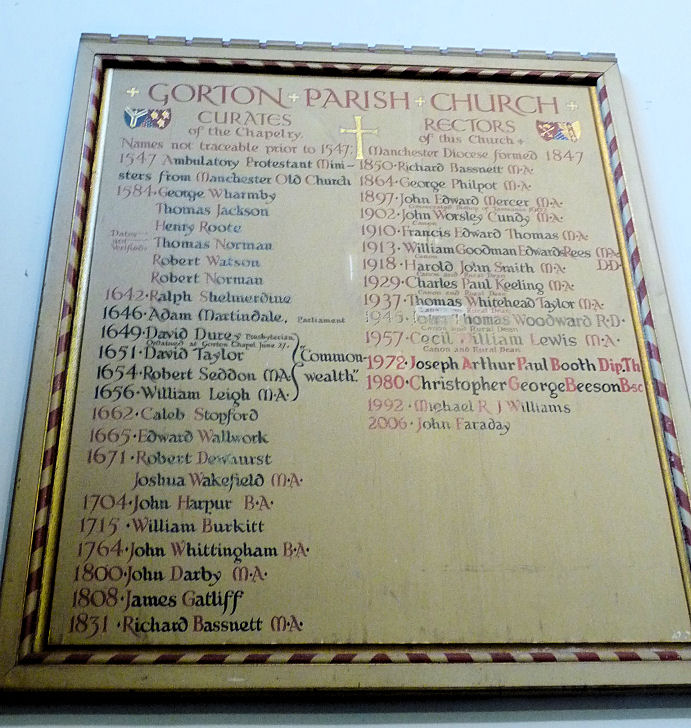 GORTON PARISH CHURCH
CURATES
of the Chapelry.
Names not traceable prior to 1547:
1547 Ambulatory Protestant Mini-
sters from Manchester Old Church
1584·George Wharmby
Thomas Jackson
Henry Roote
Dates
not
Verified
Thomas Norman
Robert Watson
Robert Norman
1642·Ralph Shelmerdine
1646·Adam Martindale, Parliament
1649·David Durey Presbyterian
Ordained at Gorton Chapel June 27.
1651·David Taylor
1654·Robert Seddon M·A·
1656·William Leigh M·A·
"Common-
wealth".
1662·Caleb Stopford
1665·Edward Wallwork
1671·Robert Dewhurst
Joshua Wakefield M·A·
1704·John Harpur B·A·
1715·William Burkitt
1764·John Whittingham B·A·
1800·John Darby M·A·
1808·James Gatliff
1831·Richard Bassnett M·A·
RECTORS
of this Church
Manchester Diocese formed 1847
1850·Richard Bassnett M·A·
1864·George Philpot M·A·
1897·John Edward Mercer M·A·
1902·John Worsley Cundy M·A·
Canon
1910·Francis Edward Thomas M·A·
1913·William Goodman Edwards·Rees M·A·
Canon
1918·Harold John Smith M·A· D·D·
Canon and Rural Dean
1929·Charles Paul Keeling M·A·
Canon and Rural Dean
1937·Thomas Whitehead Taylor M·A·
Rural Dean
1945·John Thomas Woodward R·D·
Canon and Rural Dean
1957·Cecil William Lewis M·A·
Canon and Rural Dean
1972·Joseph Arthur Paul Booth Dip.Th
1980·Christopher George Beeson Bsc
1992·Michael R J Williams
2006·John Faraday